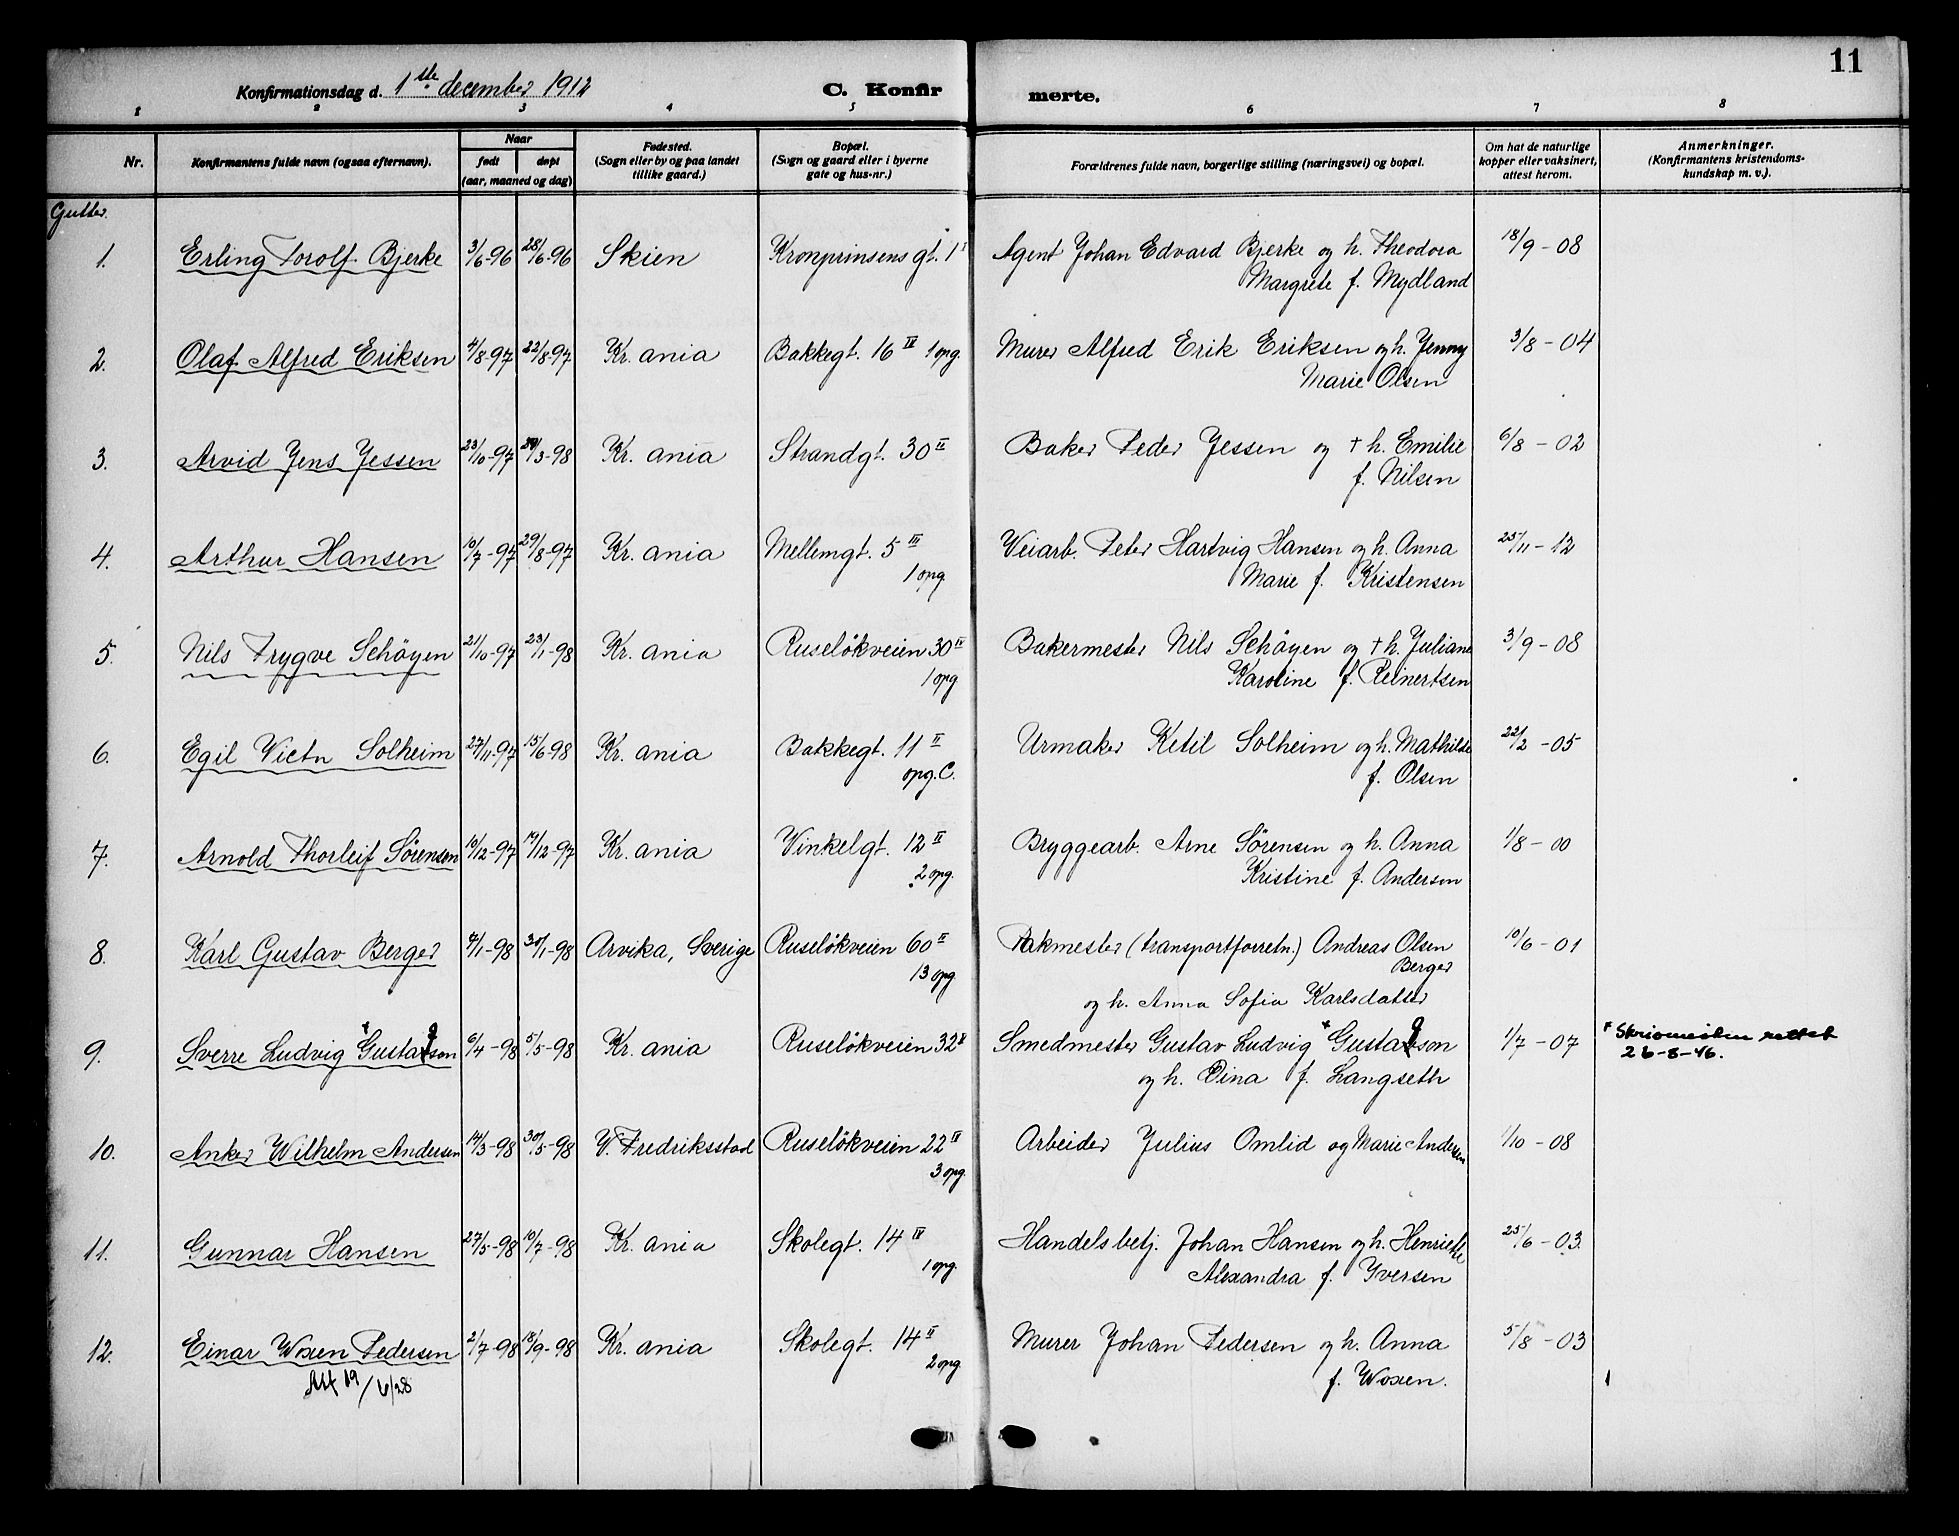 11
Konfirmationsdag d. 1ste december 1912 C. Konfirmerte.
1 2 3 4 5 6 7 8
Nr. Konfirmantens fulde navn (ogsaa efternavn). Naar født døpt (aar, maaned og dag) Fødested. (Sogn eller by og paa landet tillike gaard.) Bopæl. (Sogn og gaard eller i byerne gate og hus-nr.) Forældrenes fulde navn, borgerlige stilling (næringsvei) og bopæl. Om hat de naturlige kopper eller vaksinert, attest herom. Anmerkninger. (Konfirmantens kristendoms-kundskap m. v.).
Gutter.
1. Erling Torolf Bjerke 3/6-96 28/6-96 Skien Kronprinsensgt. 1 I Agent Johan Edvard Bjerke og h. Theodora 18/9-08
Margrete f. Mydland
2. Olaf Alfred Eriksen 4/8-97 22/8-97 Kr.ania Bakkegt. 16 IV 1 opg. Murer Alfred Erik Eriksen og h. Jenny 3/8-04
Marie Olsen
3. Arvid Jens Jessen 23/10-97 /3-98 Kr.ania Strandgt. 30 II Baker Peder Jessen og + h. Emilie 6/8-02
f. Nilsen
4. Arthur Hansen 10/7-97 29/8-97 Kr.ania Mellemgt. 5 III Veiarb. Peter Hartvig Hansen og h. Anna 25/11-12
1 opg. Marie f. Kristensen
5. Nils Trygve Schöyen 21/10-97 23/1-98 Kr.ania Ruselökveien 30 IV Bakermester Nils Schöyen og + h. Juliane 3/9-08
1 opg Karoline f. Reinertsen
6. Egil Victor Solheim 27/11-97 15/6-98 Kr.ania Bakkegt. 11 II Urmaker Ketil Solheim og h. Mathilde 22/2-05
opg. C. f. Olsen
7. Arnold Thorleif Sörensen 10/12-97 19/12-97 Kr.ania Vinkelgt. 12 II Bryggearb. Arne Sörensen og h. Anna 1/8-00
2 opg. Kristine f. Andersen
8. Karl Gustav Berger 4/1-98 30/1-98 Arvika, Sverige Ruselökveien 60 II Pakmester (transportforretn.) Andreas Olsen 10/6-01
13 opg Berger
og h. Anna Sofia Karlsdatter
9. Sverre Ludvig + Gustafson 6/4-98 5/5-98 Kr.ania Ruselökveien 32 II Smedmester Gustav Ludvig + Gustafson 1/7-07 + Skrivemåten rettet
og h. Dina f. Langseth 26-8-46.
10. Anker Wilhelm Andersen 14/3-98 30/5-98 V. Fredriksstad Ruselökveien 22 IV Arbeider Julius Omlid og Marie Andersen 1/10-08
3 opg
11. Gunnar Hansen 27/5-98 10/7-98 Kr.ania Skolegt. 14 IV Handelsbetj. Johan Hansen og h. Henriette 25/6-03.
1 opg. Alexandra f. Iversen
12. Einar Woxen Pedersen 2/7-98 18/9-98 Kr.ania Skolegt. 14 II Murer Johan Pedersen og h. Anna 5/8-03
Att 19/6/28 2 opg. f. Woxen.